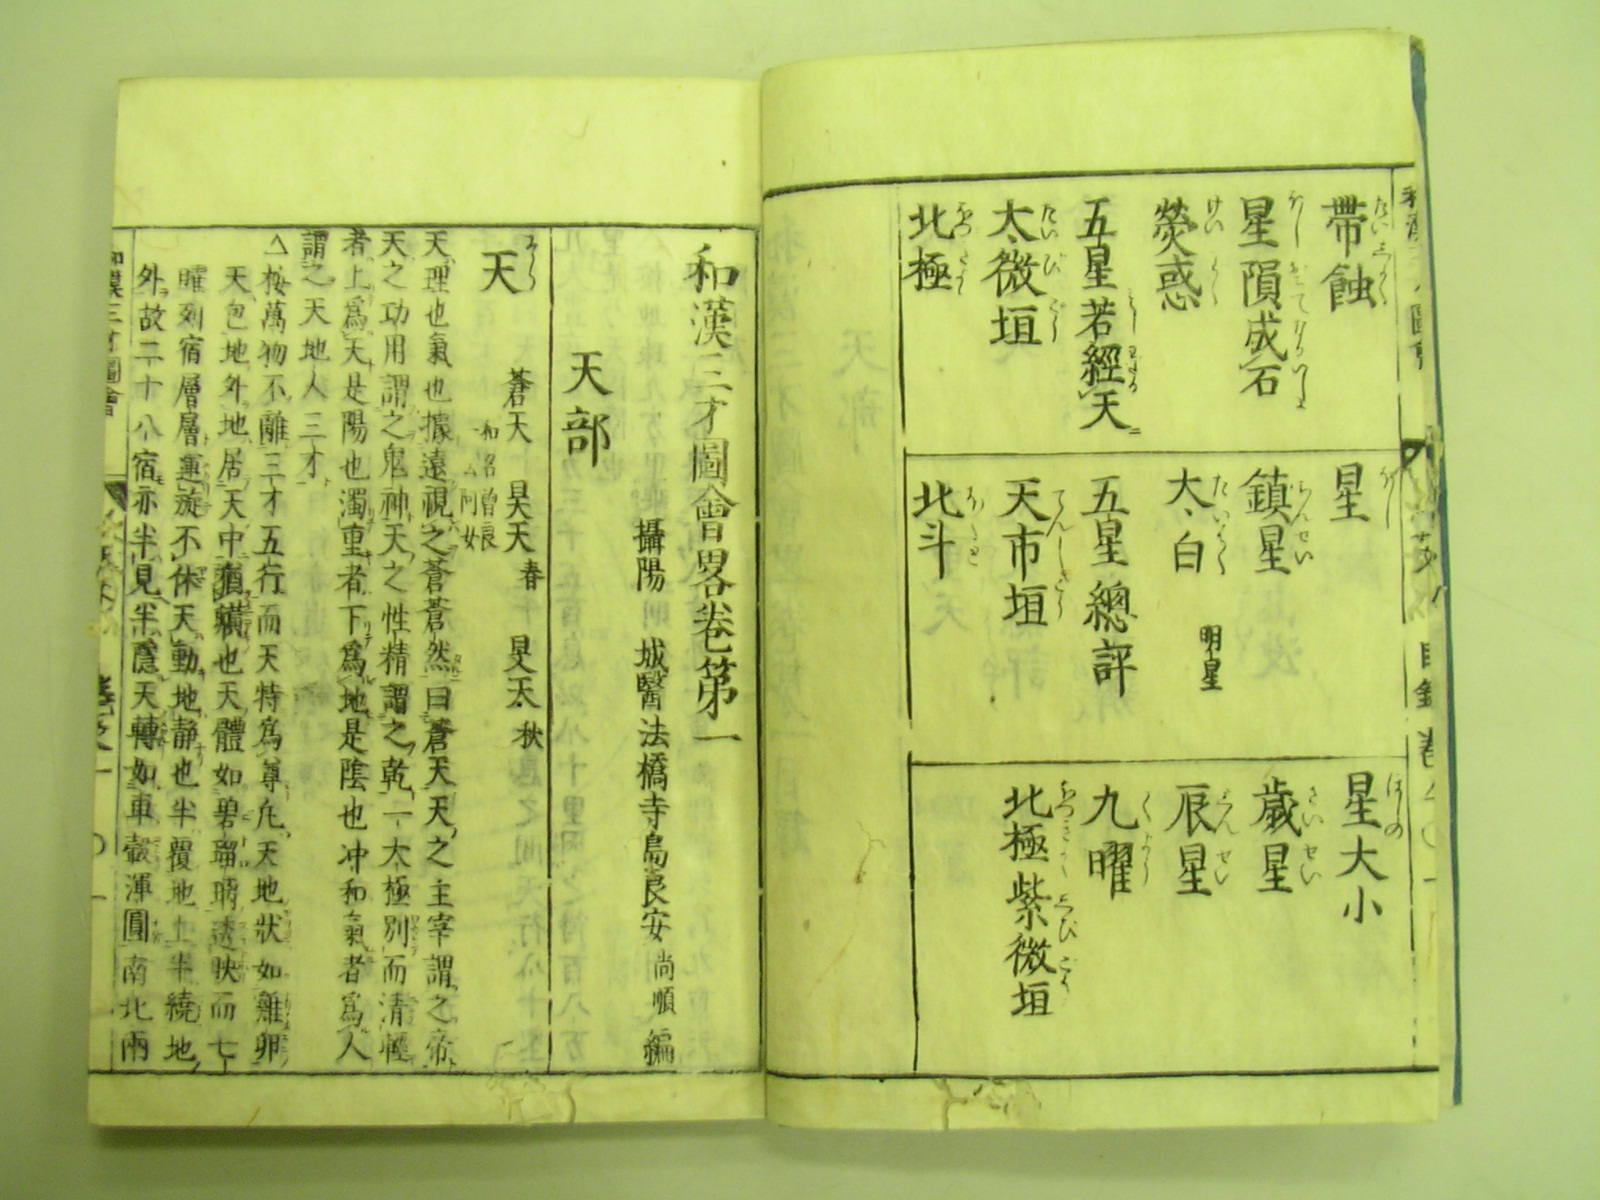 帶蝕
星隕成石
熒惑
五星若經天
太微垣
北極
星
鎮星
太白 明星
五星總評
天市垣
北斗
星大小
歲星
辰星
九曜
北極紫微垣
和漢三才圖會畧卷第一
攝陽 城醫法橋寺島良安尚順編
天部
天
蒼天 昊天春 旻天秋
和名曽良
阿女
天理也氣也據遠視之蒼蒼然曰蒼天天之主宰謂之帝
天之功用謂之鬼神天之性精謂之乾一太極別而清輕
者上爲天是陽也濁重者下爲地是陰也冲和氣者爲人
謂之天地人三才
△按萬物不離三才五行而天特爲尊凡天地狀如雞卵
天包地外地居天中猶䵃也天體如碧瑠璃透映而七
曜列宿層層運旋不休天動地静也半覆地上半繞地
外故二十八宿亦半見半隱天轉如車轂渾圓南北兩
和漢三才圖會